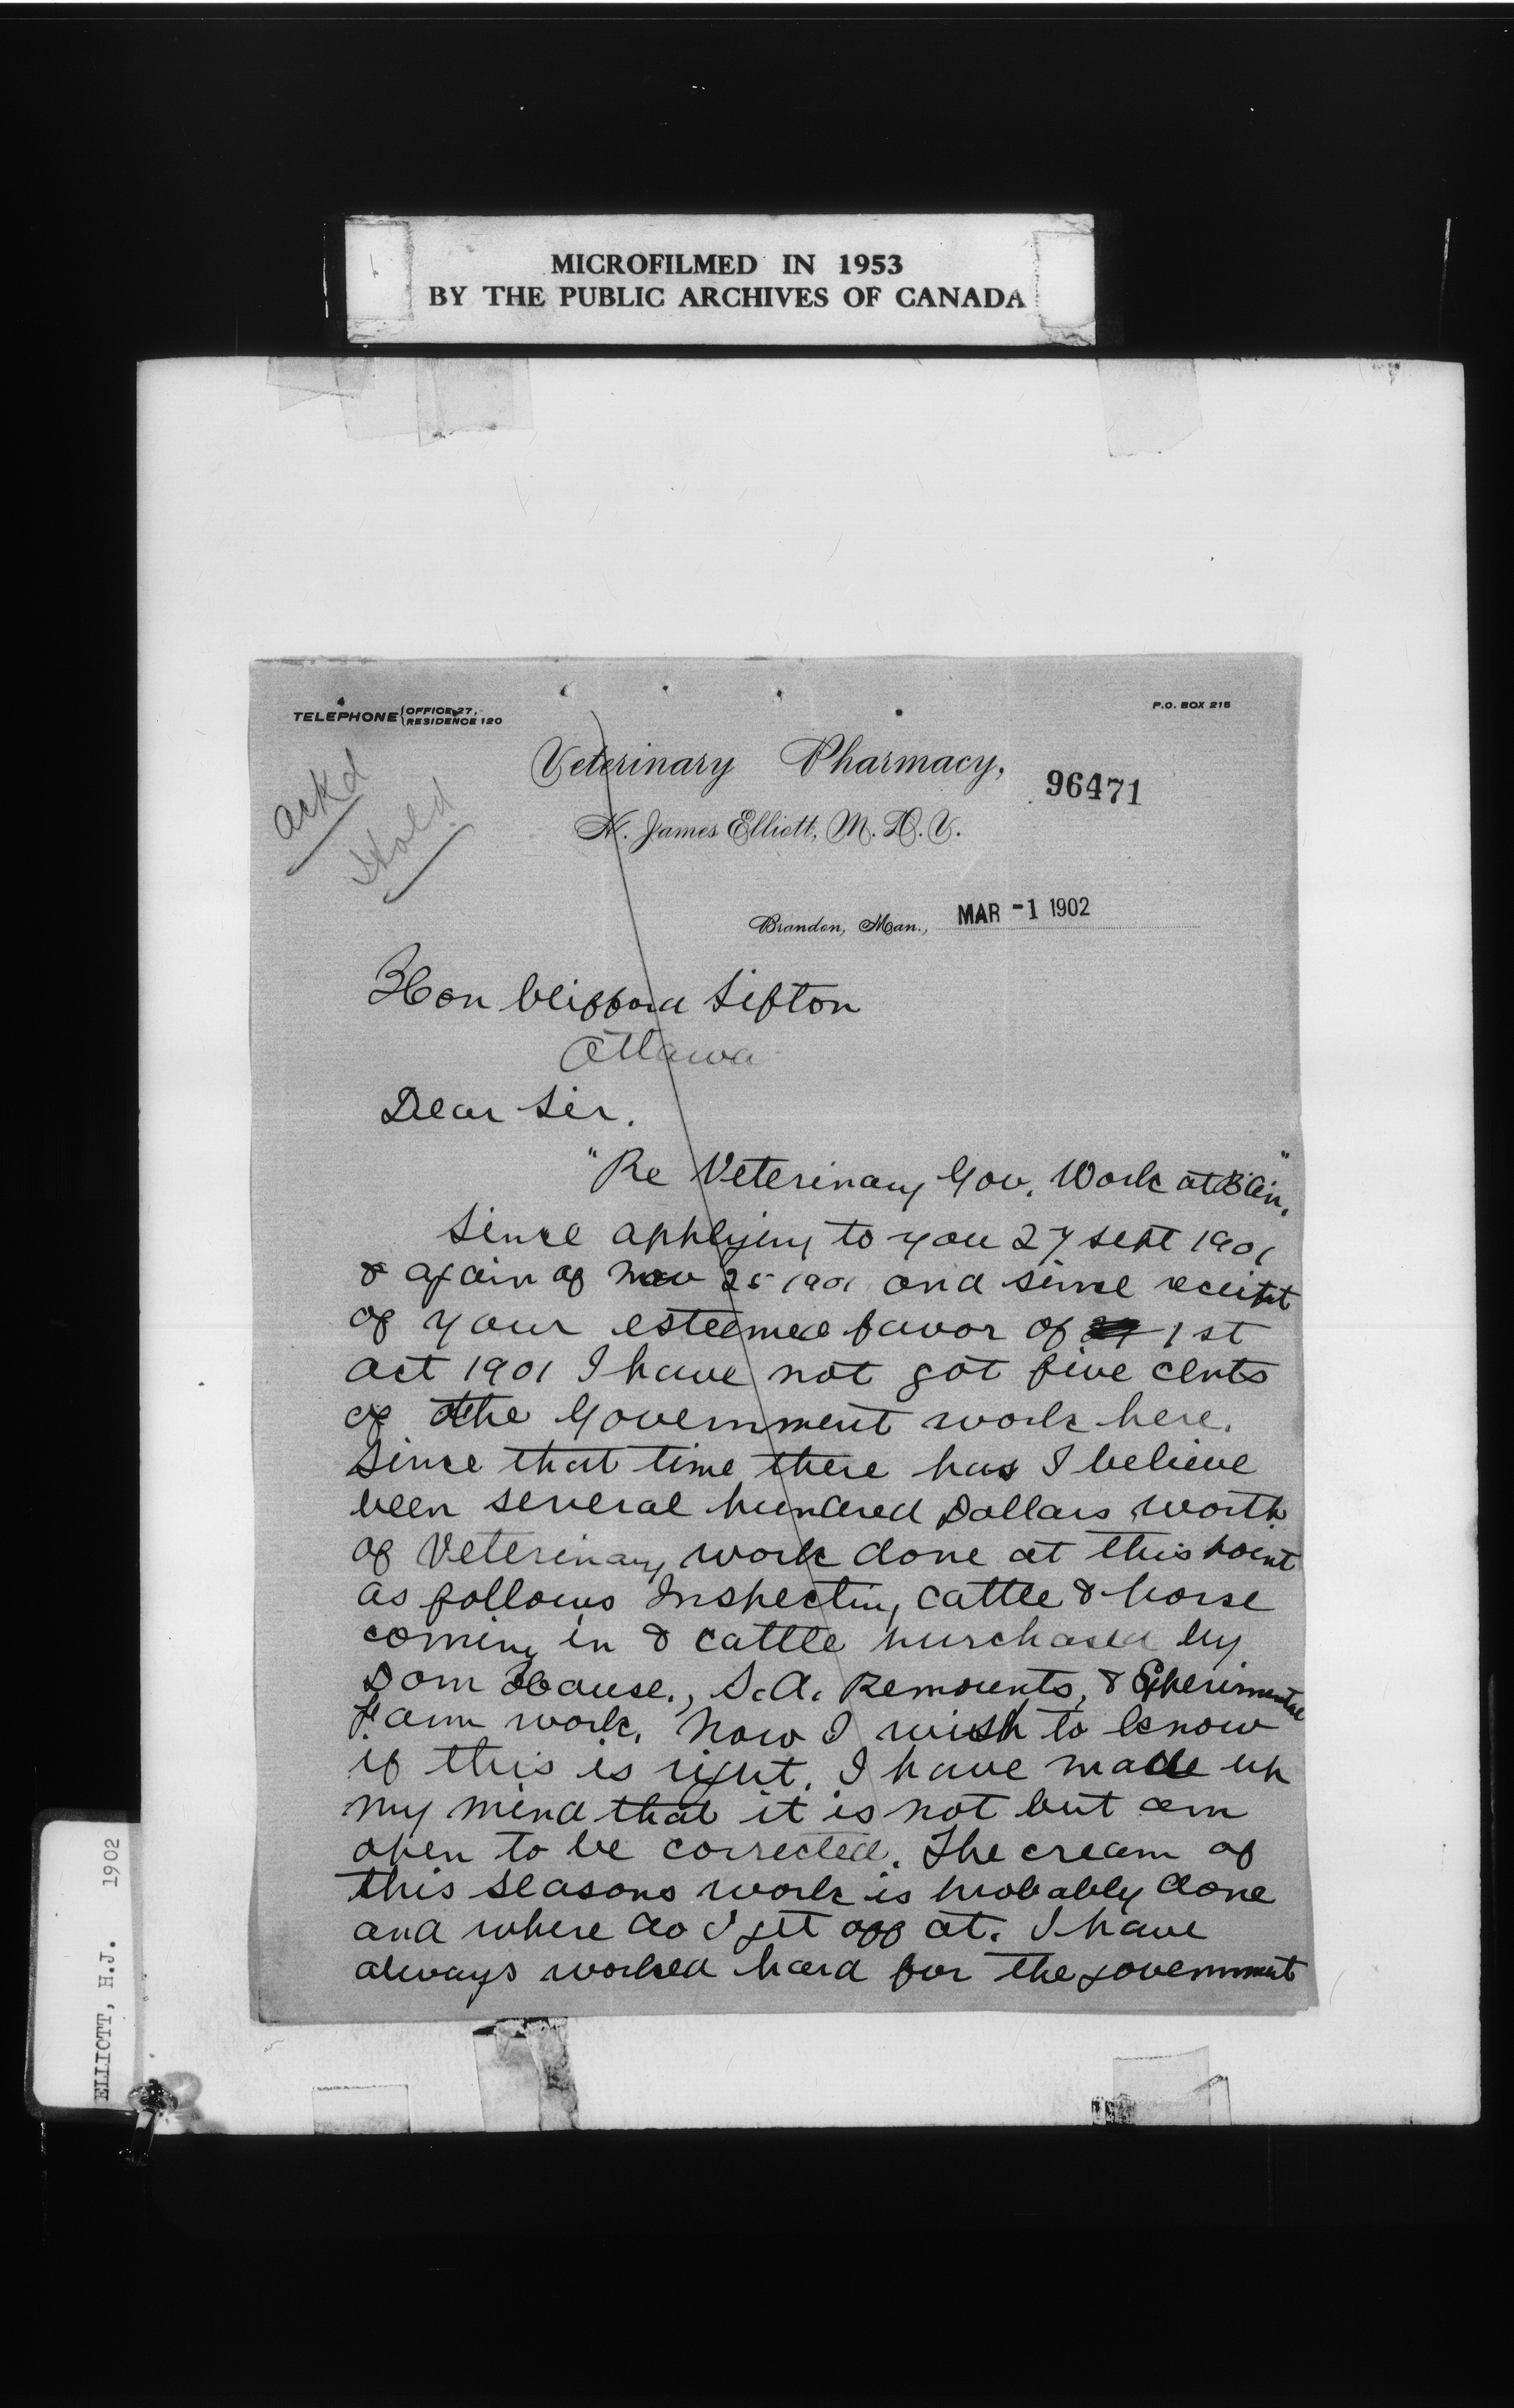 MICROFILMED IN 1953
BY THE PUBLIC ARCHIVES OF CANADA
TELEPHONE { OFFICE 27,
RESIDENCE 120
P.O. BOX 215
ackd
Hold
Veterinary Pharmacy,
96471
H. James Elliott, M. D. V.
Brandon, Man., MAR -1 1902
Hon Clifford Sifton
Ottawa
Dear Sir.
"Re Veterinary Gov. Work at
Since applying to you 27 Sept 1901
& again of Nov 25 1901 and since receipt
of your esteemed favor of 1st
Oct 1901 I have not got five cents
of the Government work here.
Since that time there has I believe
been several hundred Dollars worth
of Veterinary work done at this point
as follows Inspecting cattle & horse
coming in & cattle purchased by
Dom House., S.A. Remounts, & Experimental
Farm work. Now I wish to know
if this is right. I have made up
my mind that it is not but am
open to be corrected. The cream of
this seasons work is probably done
and where do I get off at. I have
always worked hard for the government
ELLIOTT, H.J. 1902